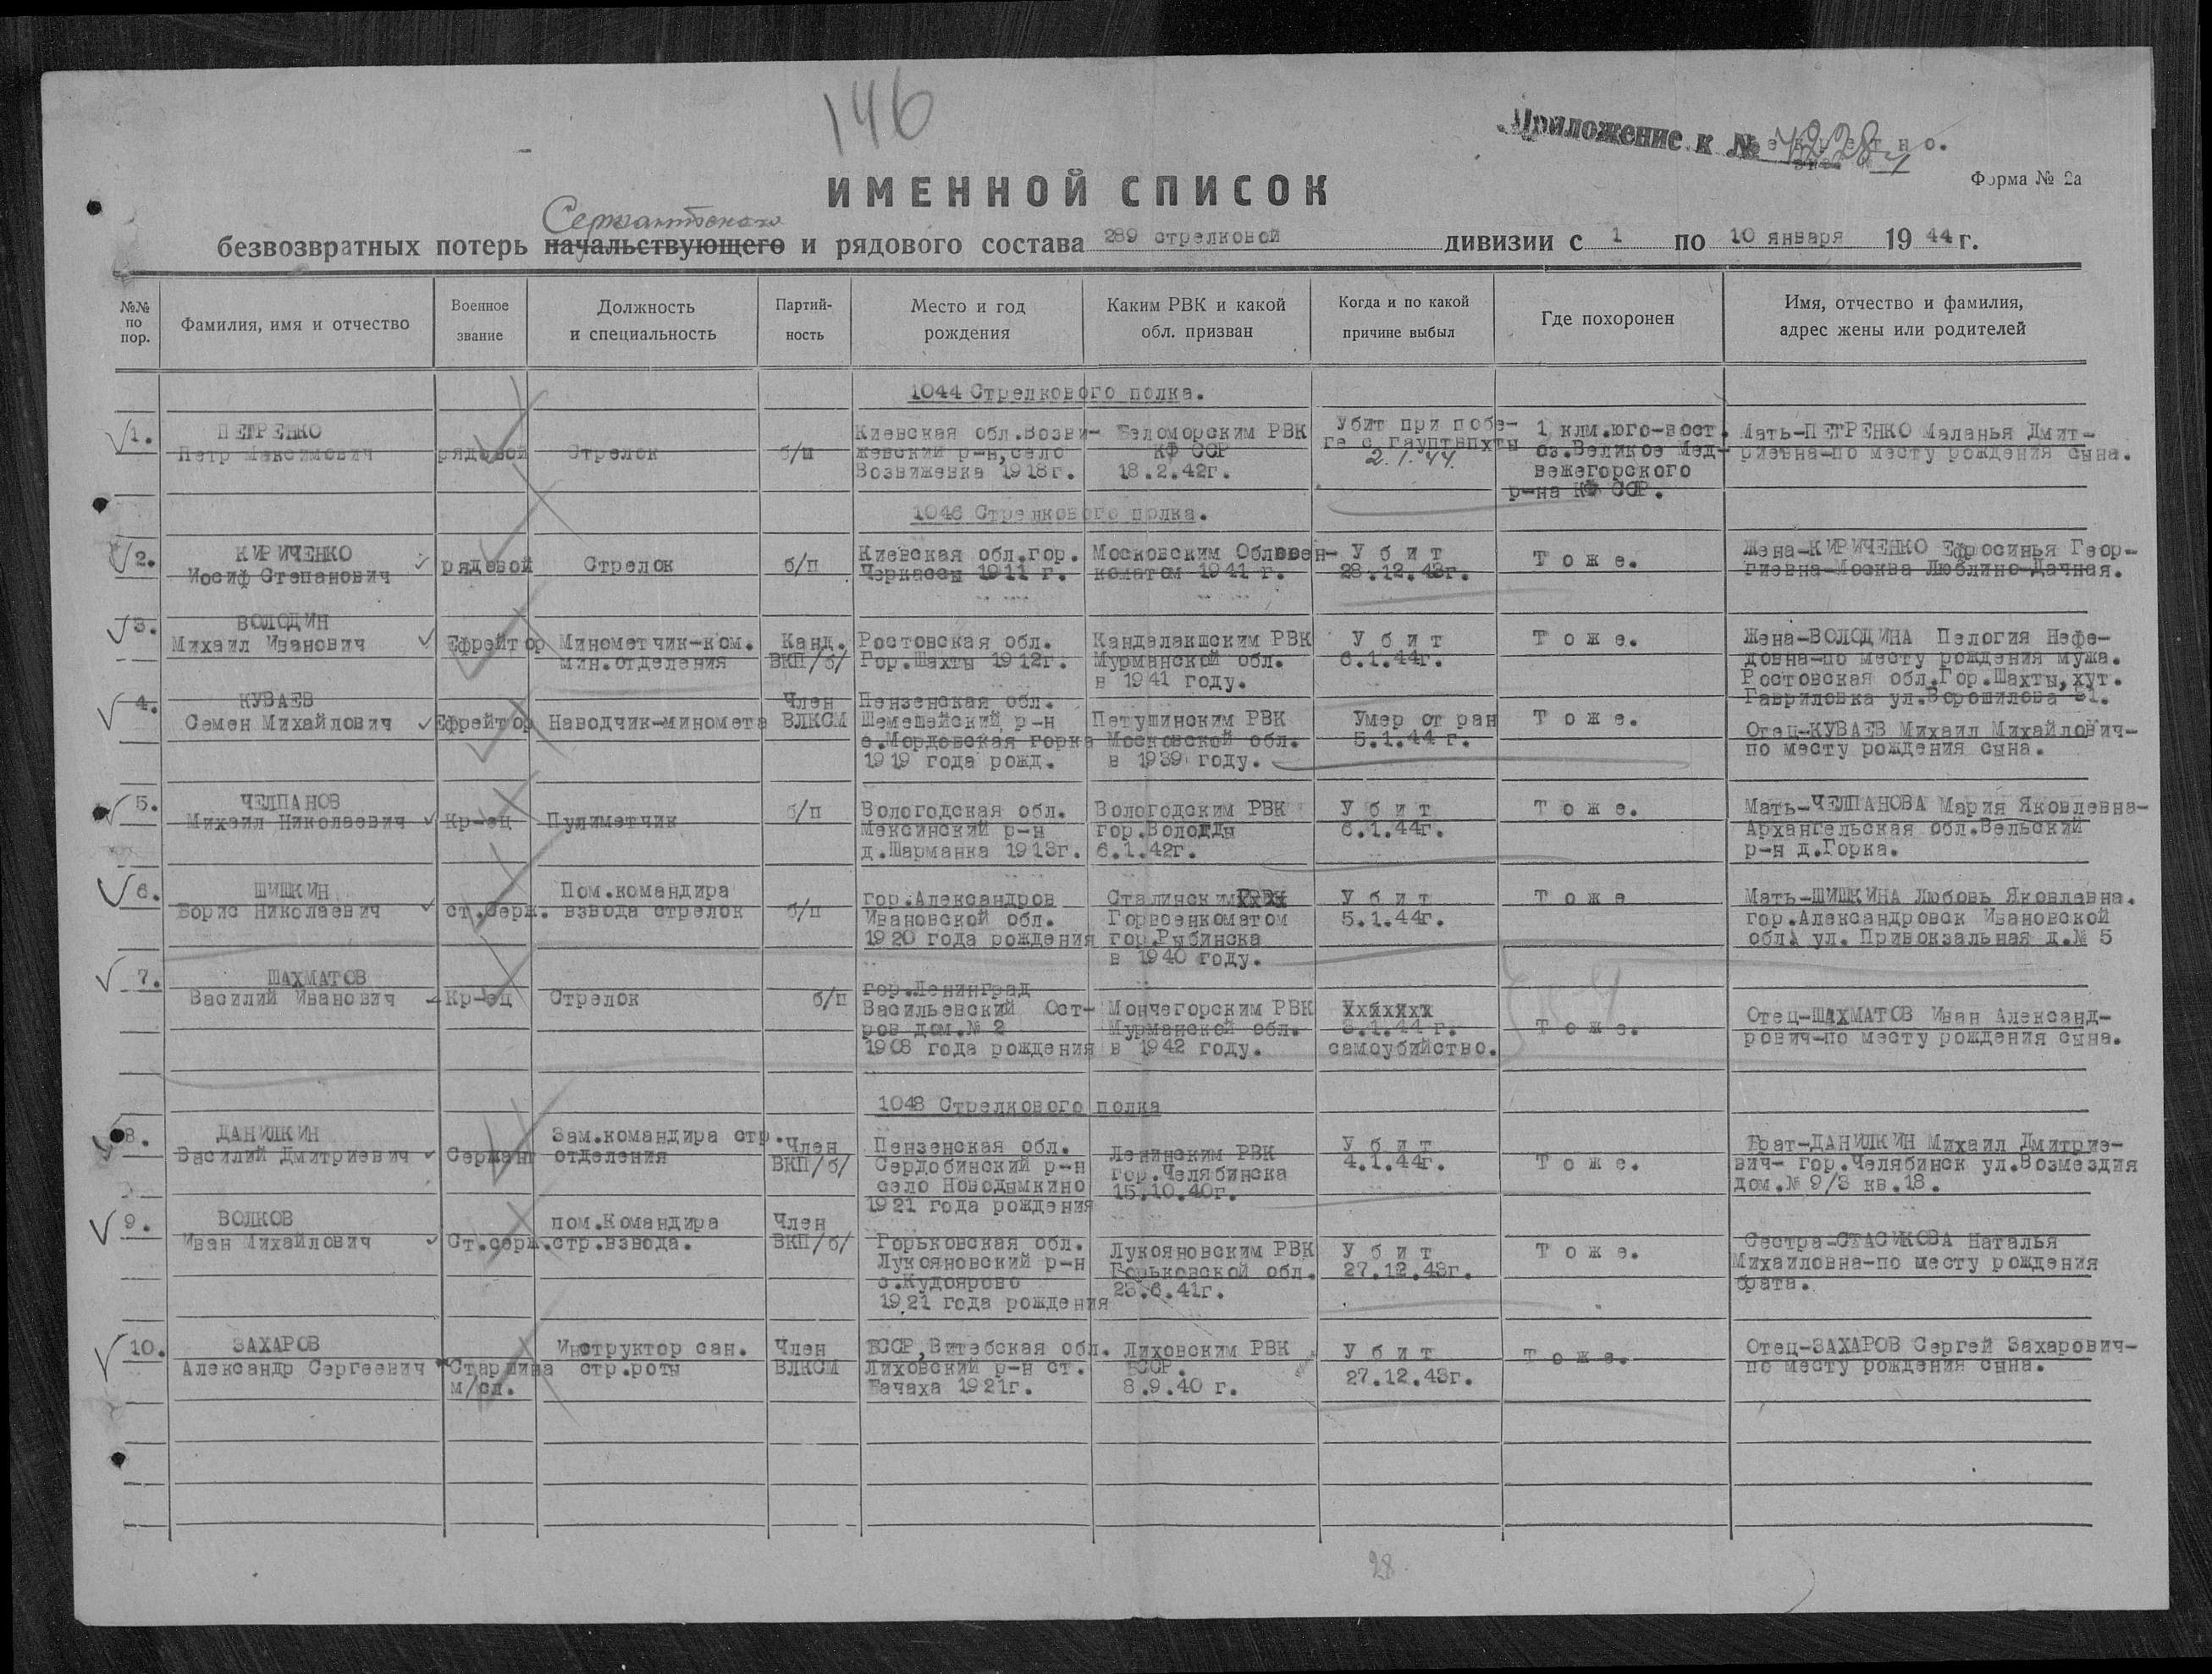 146
Приложение к № 4228
Секретно.
Форма № 2а
ИМЕННОЙ СПИСОК
Сержантского
безвозвратных потерь начальствующего и рядового состава 289 стрелковой дивизии с 1 по 10 января 1944 г.
№№ по пор. | Фамилия, имя и отчество | Военное звание | Должность и специальность | Партийность | Место и год рождения | Каким РВК и какой обл. призван | Когда и по какой причине выбыл | Где похоронен | Имя, отчество и фамилия, адрес жены или родителей
1044 Стрелкового полка.
1. ПЕТРЕНКО Петр Максимович | рядовой | Стрелок | б/п | Киевская обл.Возвижевский р-н,село Возвижевка 1918г. | Беломорским РВК КФ ССР 18.2.42г. | Убит при побеге с гауптвпхты 2.1.44. | 1 клм.юго-вост. оз.Великое Медвежегорского р-на КФ ССР. | Мать-ПЕТРЕНКО Маланья Дмитриевна-по месту рождения сына.
1046 Стрелкового полка.
2. КИРИЧЕНКО Иосиф Степанович | рядовой | Стрелок | б/п | Киевская обл.гор. Черкассы 1911 г. | Московским Облвоенкоматом 1941 г. | Убит 28.12.43г. | Тоже. | Жена-КИРИЧЕНКО Ефросинья Георгиевна-Москва Люблино-Дачная.
3. ВОЛОДИН Михаил Иванович | Ефрейтор | Минометчик-ком. мин.отделения | Канд. ВКП/б/ | Ростовская обл. Гор.Шахты 1912г. | Кандалакшским РВК Мурманской обл. в 1941 году. | Убит 6.1.44г. | Тоже. | Жена-ВОЛОДИНА Пелогия Нефедовна-по месту рождения мужа. Ростовская обл.Гор.Шахты,хут. Гавриловка ул.Ворошилова 81.
4. КУВАЕВ Семен Михайлович | Ефрейтор | Наводчик-миномета | Член ВЛКСМ | Пензенская обл. Шемешейский р-н с.Мордовская горка 1919 года рожд. | Петушинским РВК Московской обл. в 1939 году. | Умер от ран 5.1.44 г. | Тоже. | Отец-КУВАЕВ Михаил Михайлович-по месту рождения сына.
5. ЧЕЛПАНОВ Михаил Николаевич | Кр-ец | Пулиметчик | б/п | Вологодская обл. Мексинский р-н д.Шарманка 1913г. | Вологодским РВК гор.Вологды 6.1.42г. | Убит 6.1.44г. | Тоже. | Мать-ЧЕЛПАНОВА Мария Яковлевна-Архангельская обл.Вельский р-н д.Горка.
6. ШИШКИН Борис Николаевич | ст.серж. | Пом.командира взвода стрелок | б/п | гор.Александров Ивановской обл. 1920 года рождения | Сталинским Горвоенкоматом гор.Рыбинска в 1940 году. | Убит 5.1.44г. | Тоже | Мать-ШИШКИНА Любовь Яковлевна. гор.Александровск Ивановской обл. ул. Привокзальная д.№ 5
7. ШАХМАТОВ Василий Иванович | Кр-ец | Стрелок | б/п | гор.Ленинград Васильевский Остров дом.№ 2 1908 года рождения | Мончегорским РВК Мурманской обл. в 1942 году. | 3.1.44 г. самоубийство. | Тоже. | Отец-ШАХМАТОВ Иван Александрович-по месту рождения сына.
1048 Стрелкового полка
8. ДАНИЛКИН Василий Дмитриевич | Сержант | Зам.командира стр. отделения | Член ВКП/б/ | Пензенская обл. Сердобинский р-н село Новодымкино 1921 года рождения | Ленинским РВК гор.Челябинска 15.10.40г. | Убит 4.1.44г. | Тоже. | Брат-ДАНИЛКИН Михаил Дмитриевич- гор.Челябинск ул.Возмездия дом.№ 9/3 кв.18.
9. ВОЛКОВ Иван Михайлович | Ст.серж. | пом.Командира стр.взвода. | Член ВКП/б/ | Горьковская обл. Лукояновский р-н с.Кудоярово 1921 года рождения | Лукояновским РВК Горьковской обл. 23.6.41г. | Убит 27.12.43г. | Тоже. | Сестра-СТАСИКОВА Наталья Михаиловна-по месту рождения брата.
10. ЗАХАРОВ Александр Сергеевич | Старшина м/сл. | Инструктор сан. стр.роты | Член ВЛКСМ | БССР,Витебская обл. Лиховский р-н ст. Бачаха 1921г. | Лиховским РВК БССР. 8.9.40 г. | Убит 27.12.43г. | Тоже. | Отец-ЗАХАРОВ Сергей Захарович-по месту рождения сына.
28